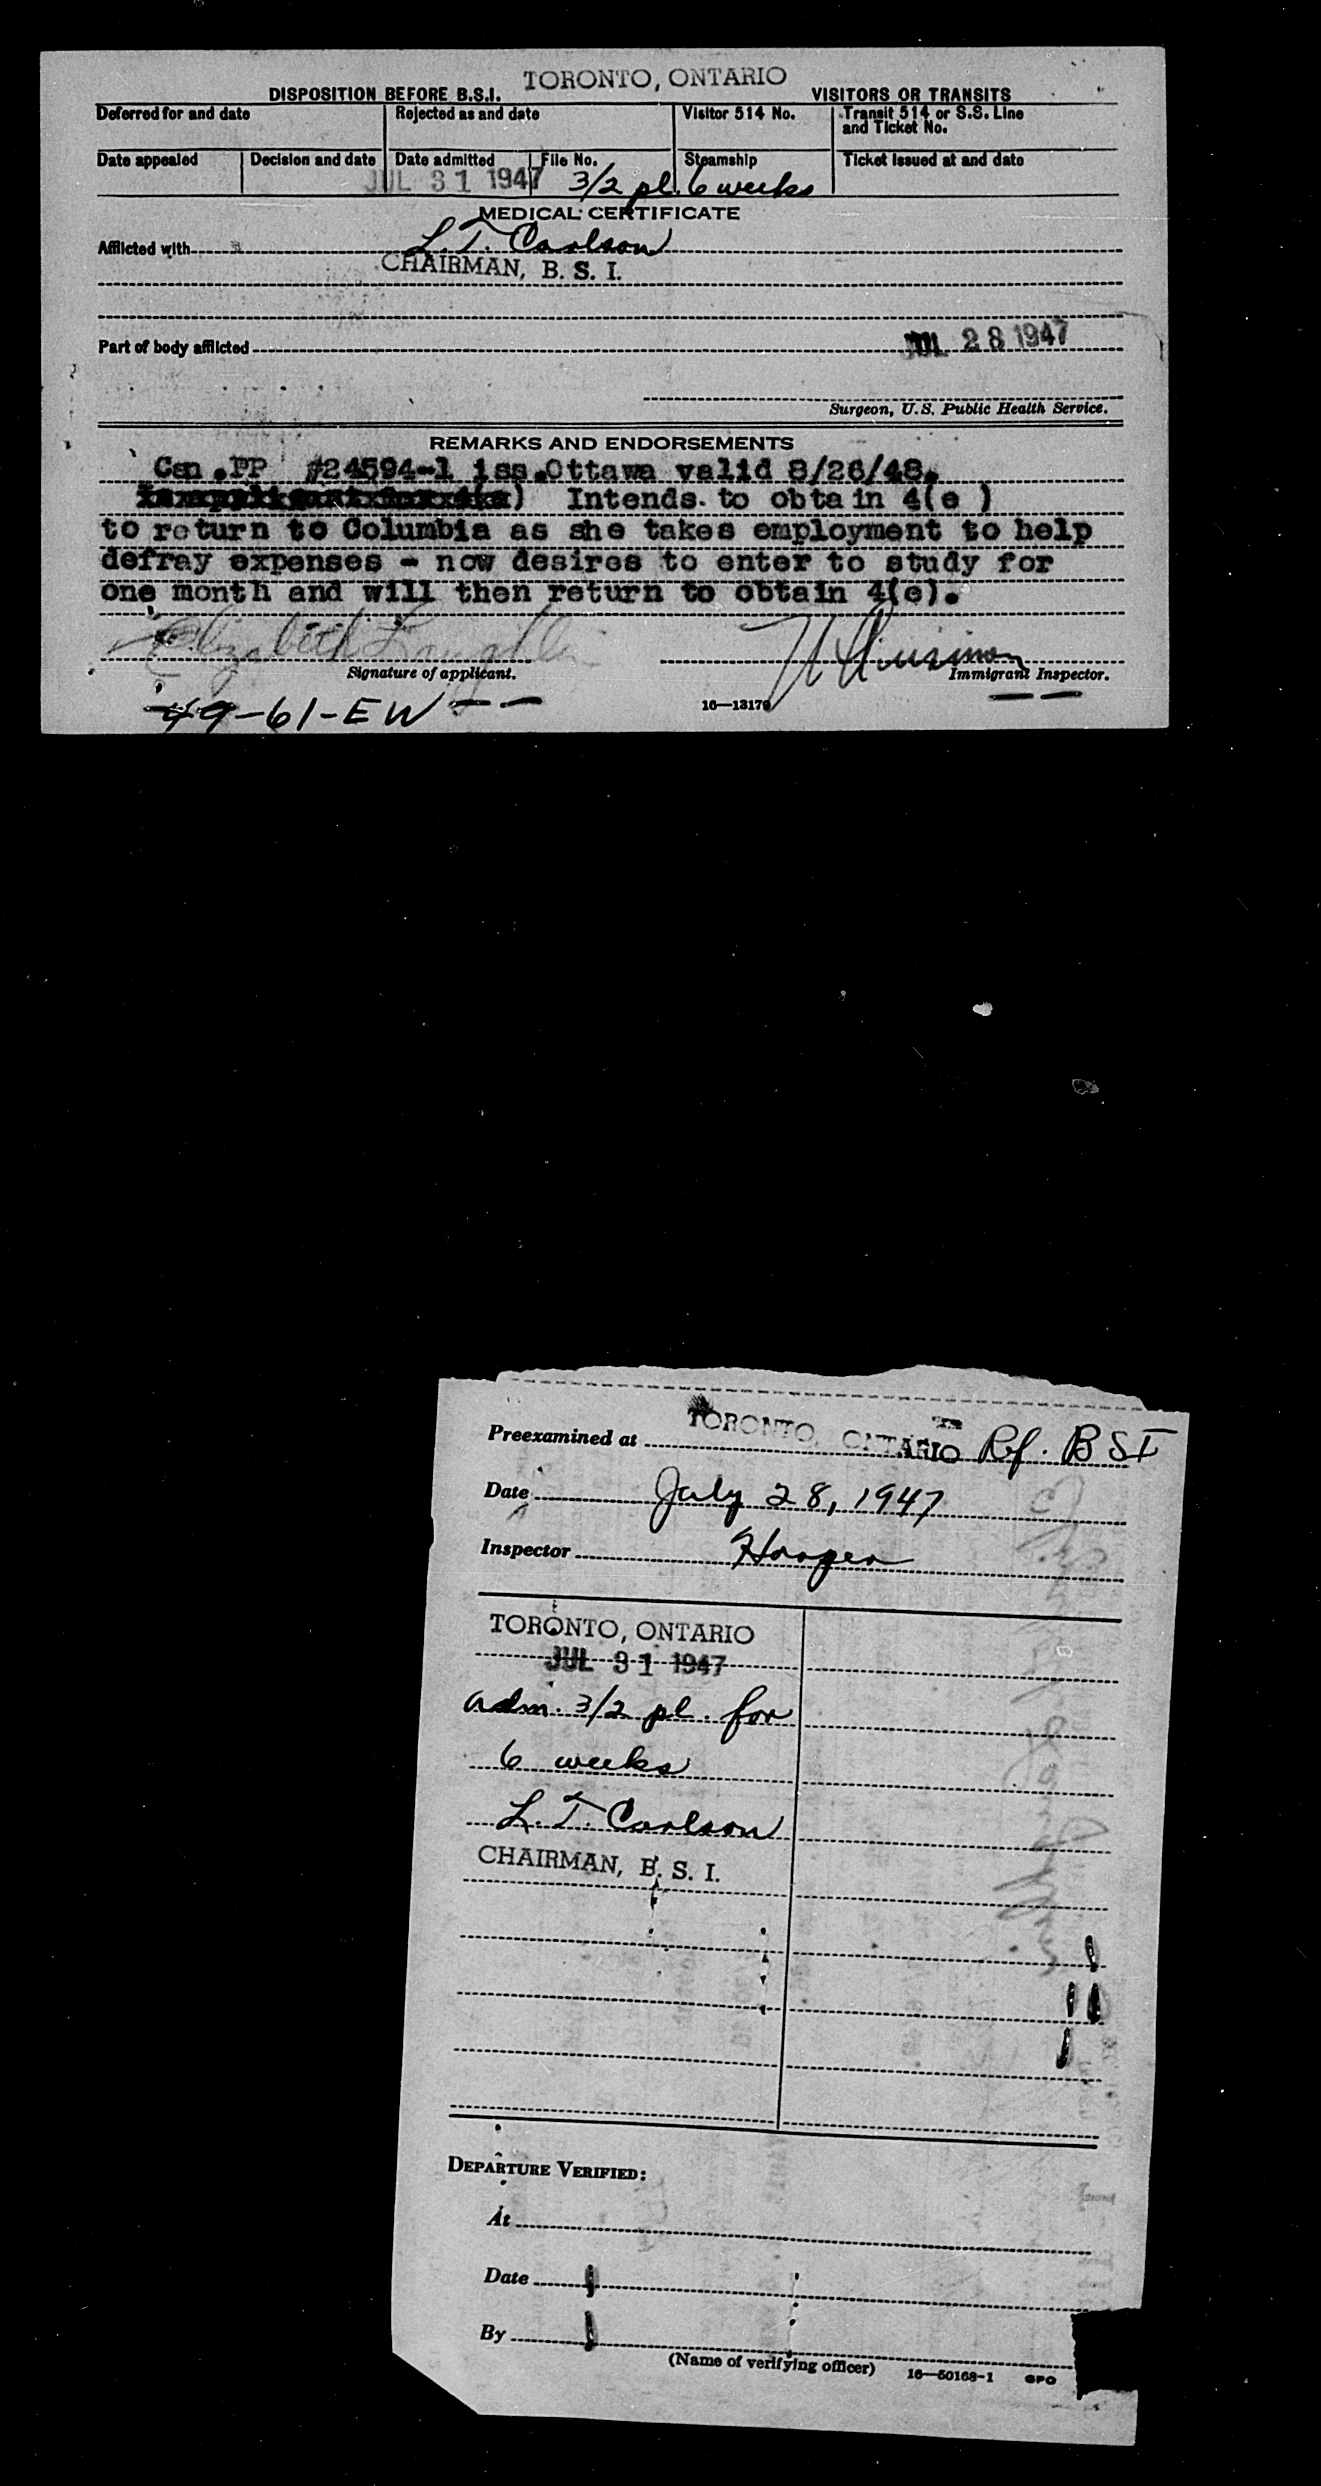 TORONTO, ONTARIO
DISPOSITION BEFORE B.S.I. VISITORS OR TRANSITS
Deferred for and date Rejected as and date Visitor 514 No. Transit 514 or S.S. Line
and Ticket No.
Date appealed Decision and date Date admitted File No. Steamship Ticket issued at and date
JUL 31 1947 3/2 pl. 6 weeks
MEDICAL CERTIFICATE
Afflicted with L. T. Carlson
CHAIRMAN, B. S. I.
Part of body afflicted JUL 28 1947
Surgeon, U.S. Public Health Service.
REMARKS AND ENDORSEMENTS
Can .PP #24594-1 iss.Ottawa valid 8/26/48.
) Intends to obtain 4(e )
to return to Columbia as she takes employment to help
defray expenses - now desires to enter to study for
one month and will then return to obtain 4(e).
Elizabeth
Signature of applicant. Immigrant Inspector.
49-61-EW-- 16-13170 --
Preexamined at TORONTO, ONTARIO Rf. BSI
Date July 28, 1947
Inspector
TORONTO, ONTARIO
JUL 31 1947
adm. 3/2 pl. for
6 weeks
L. T. Carlson
CHAIRMAN, B. S. I.
DEPARTURE VERIFIED:
At
Date
By
(Name of verifying officer) 16—50168-1 GPO